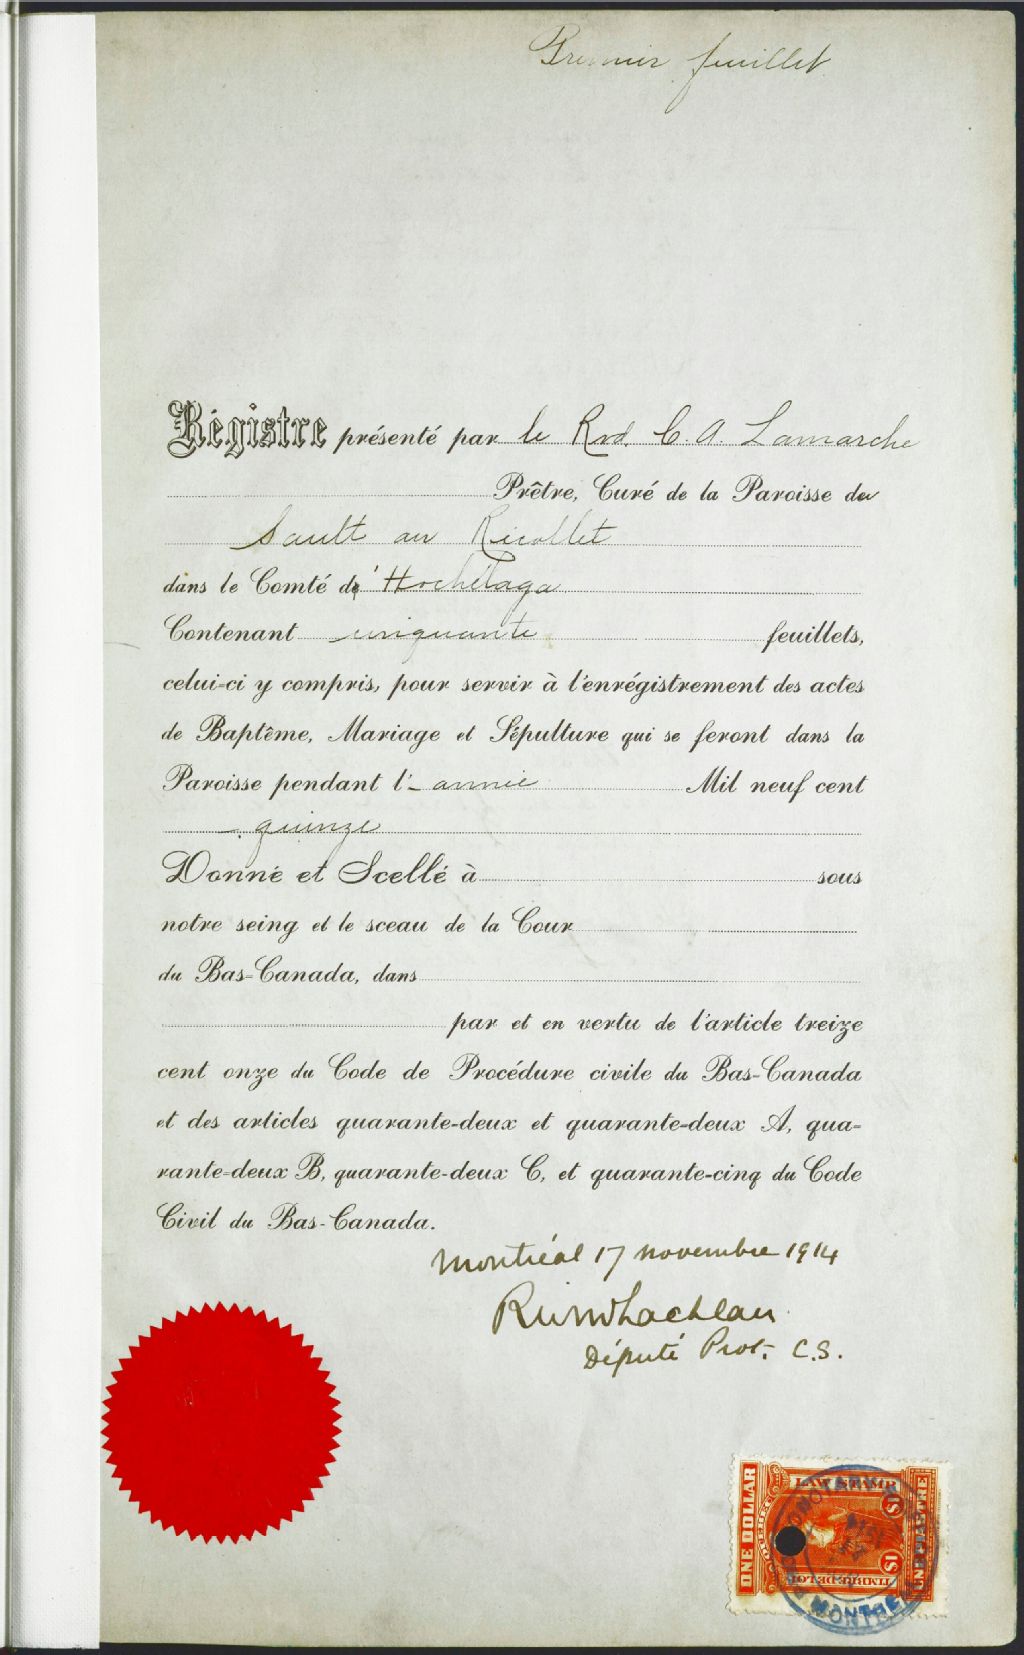 Premier feuillet
Régistre présenté par le Rvd. C. A. Lamarche
Prêtre, Curé de la Paroisse du
Sault au Ricollet
dans le Comté d'Hochelaga
Contenant cinquante feuillets,
celui-ci y compris, pour servir à l'enrégistrement des actes
de Baptême, Mariage et Sépulture qui se feront dans la
Paroisse pendant l'année Mil neuf cent
quinze
Donné et Scellé à sous
notre seing et le sceau de la Cour
du Bas-Canada, dans
par et en vertu de l'article treize
cent onze du Code de Procédure civile du Bas-Canada
et des articles quarante-deux et quarante-deux A, qua-
rante-deux B, quarante-deux C, et quarante-cinq du Code
Civil du Bas-Canada.
Montréal 17 novembre 1914
Député Prot. C.S.
ONE DOLLAR
QUEBEC
LAW STAMP
$1
$1
TIMBRE DE LOI
UNE PIASTRE
MONTREAL